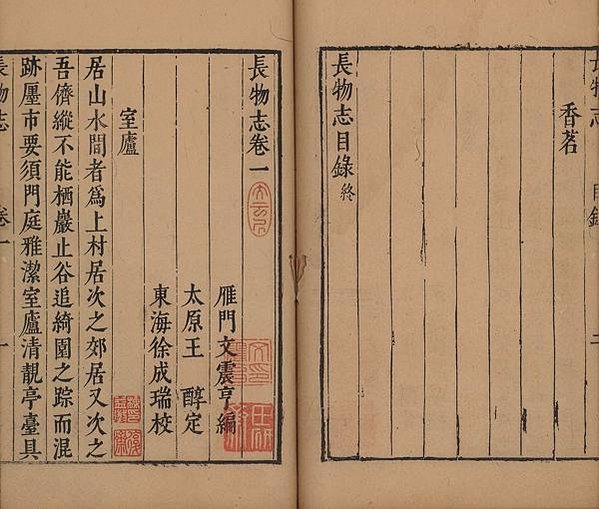 長物志 目錄 二
香茗
長物志目錄終
長物志卷一
雁門文震亨編
太原王 醇定
東海徐成瑞校
室廬
居山水間者爲上村居次之郊居又次之
吾儕縱不能栖巖止谷追綺園之踪而混
跡廛市要須門庭雅潔室廬清靚亭臺具
長物志 卷一 一